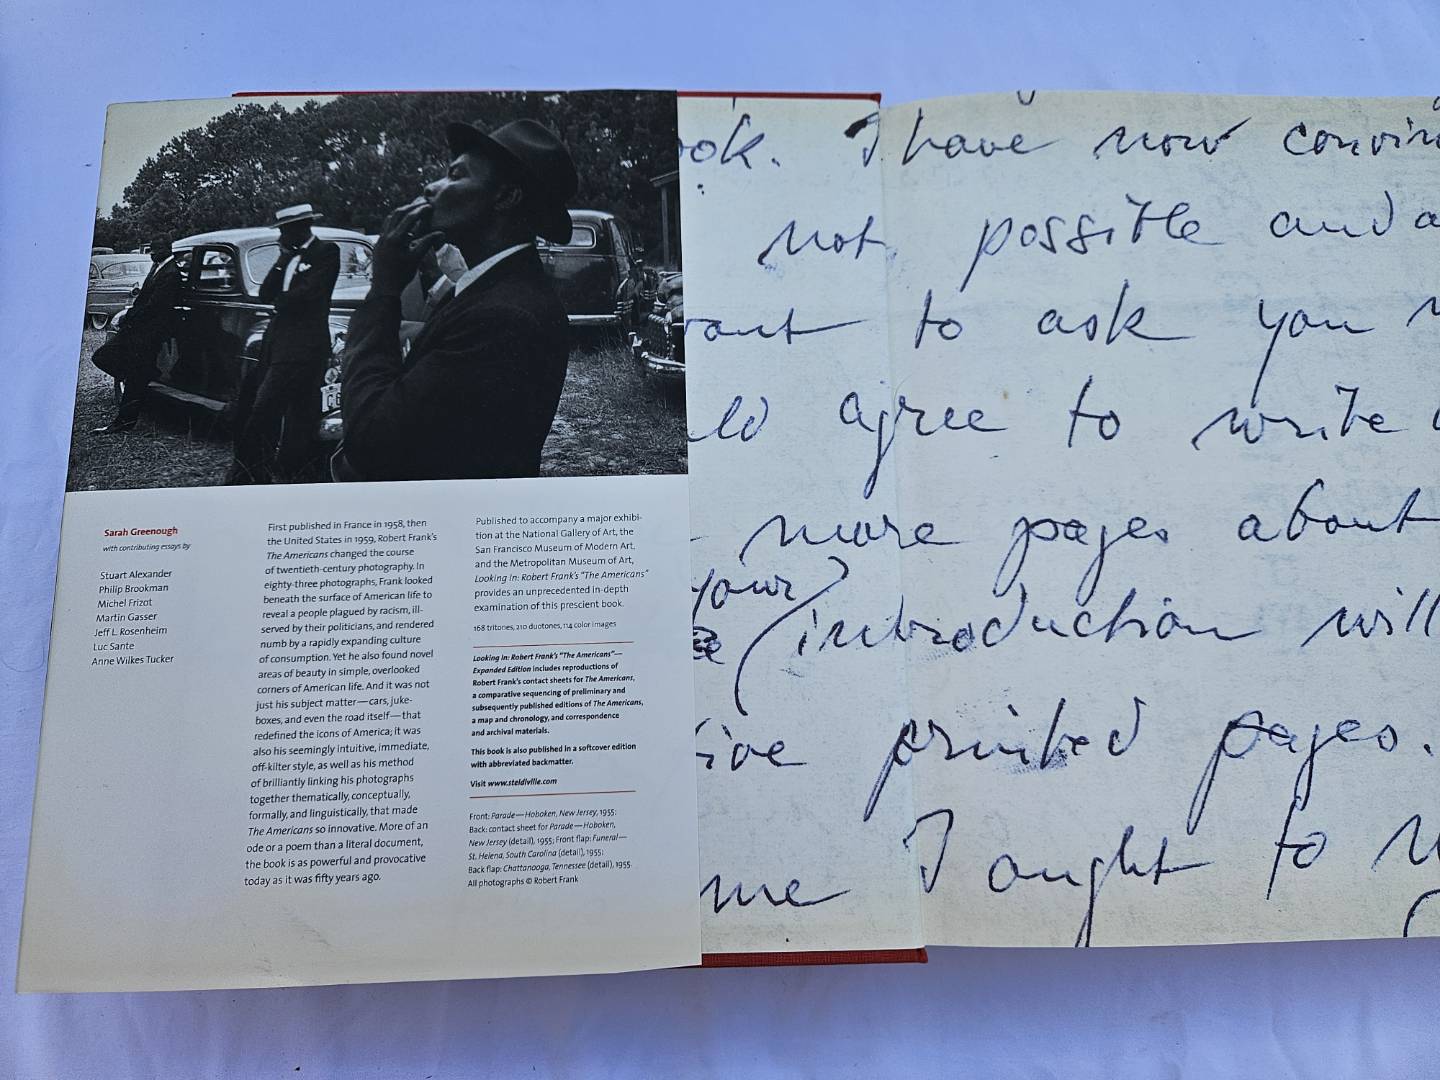 Sarah Greenough
with contributing essays by
Stuart Alexander
Philip Brookman
Michel Frizot
Martin Gasser
Jeff L. Rosenheim
Luc Sante
Anne Wilkes Tucker
First published in France in 1958, then
the United States in 1959, Robert Frank's
The Americans changed the course
of twentieth-century photography. In
eighty-three photographs, Frank looked
beneath the surface of American life to
reveal a people plagued by racism, ill-
served by their politicians, and rendered
numb by a rapidly expanding culture
of consumption. Yet he also found novel
areas of beauty in simple, overlooked
corners of American life. And it was not
just his subject matter—cars, juke-
boxes, and even the road itself—that
redefined the icons of America; it was
also his seemingly intuitive, immediate,
off-kilter style, as well as his method
of brilliantly linking his photographs
together thematically, conceptually,
formally, and linguistically, that made
The Americans so innovative. More of an
ode or a poem than a literal document,
the book is as powerful and provocative
today as it was fifty years ago.
Published to accompany a major exhibi-
tion at the National Gallery of Art, the
San Francisco Museum of Modern Art,
and the Metropolitan Museum of Art,
Looking In: Robert Frank's "The Americans"
provides an unprecedented in-depth
examination of this prescient book.
168 tritones, 210 duotones, 114 color images
Looking In: Robert Frank's "The Americans"—
Expanded Edition includes reproductions of
Robert Frank's contact sheets for The Americans,
a comparative sequencing of preliminary and
subsequently published editions of The Americans,
a map and chronology, and correspondence
and archival materials.
This book is also published in a softcover edition
with abbreviated backmatter.
Visit www.steidlville.com
Front: Parade—Hoboken, New Jersey, 1955;
Back: contact sheet for Parade—Hoboken,
New Jersey (detail), 1955; Front flap: Funeral—
St. Helena, South Carolina (detail), 1955;
Back flap: Chattanooga, Tennessee (detail), 1955.
All photographs © Robert Frank
ook. I have now convin
not possible and a
want to ask you
uld agree to write
more pages about
your
introduction will
five printed pages.
me I ought to